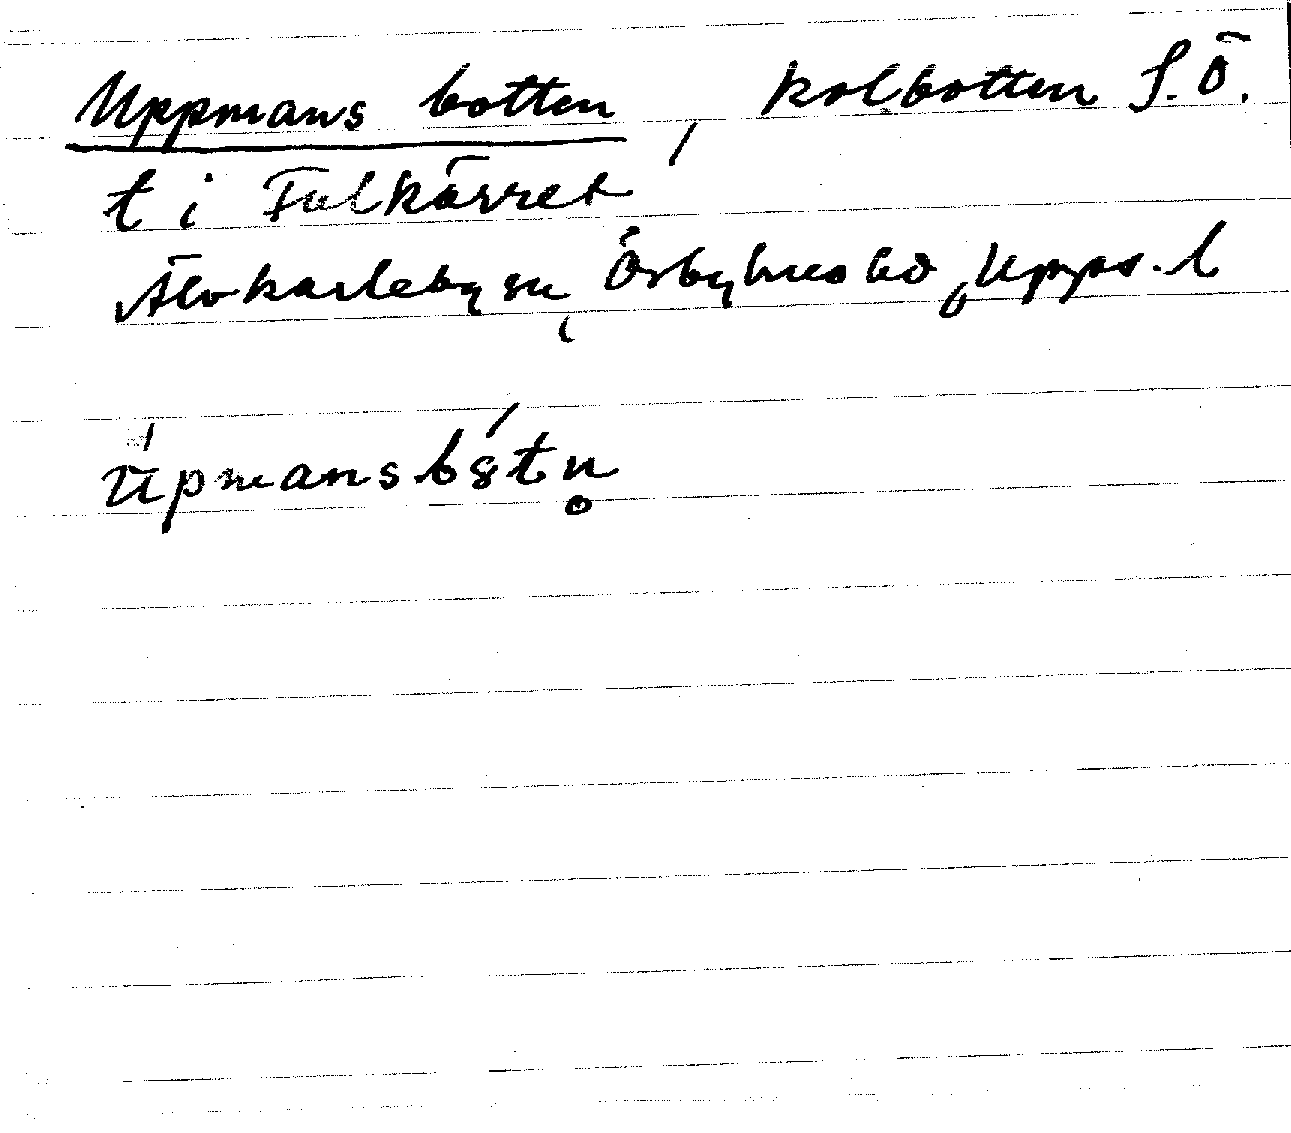 Uppmans botten, kolbotten S.Ö.
t i Fulkärret
Älvkarleby sn, Örbyhus hd, Upps. l